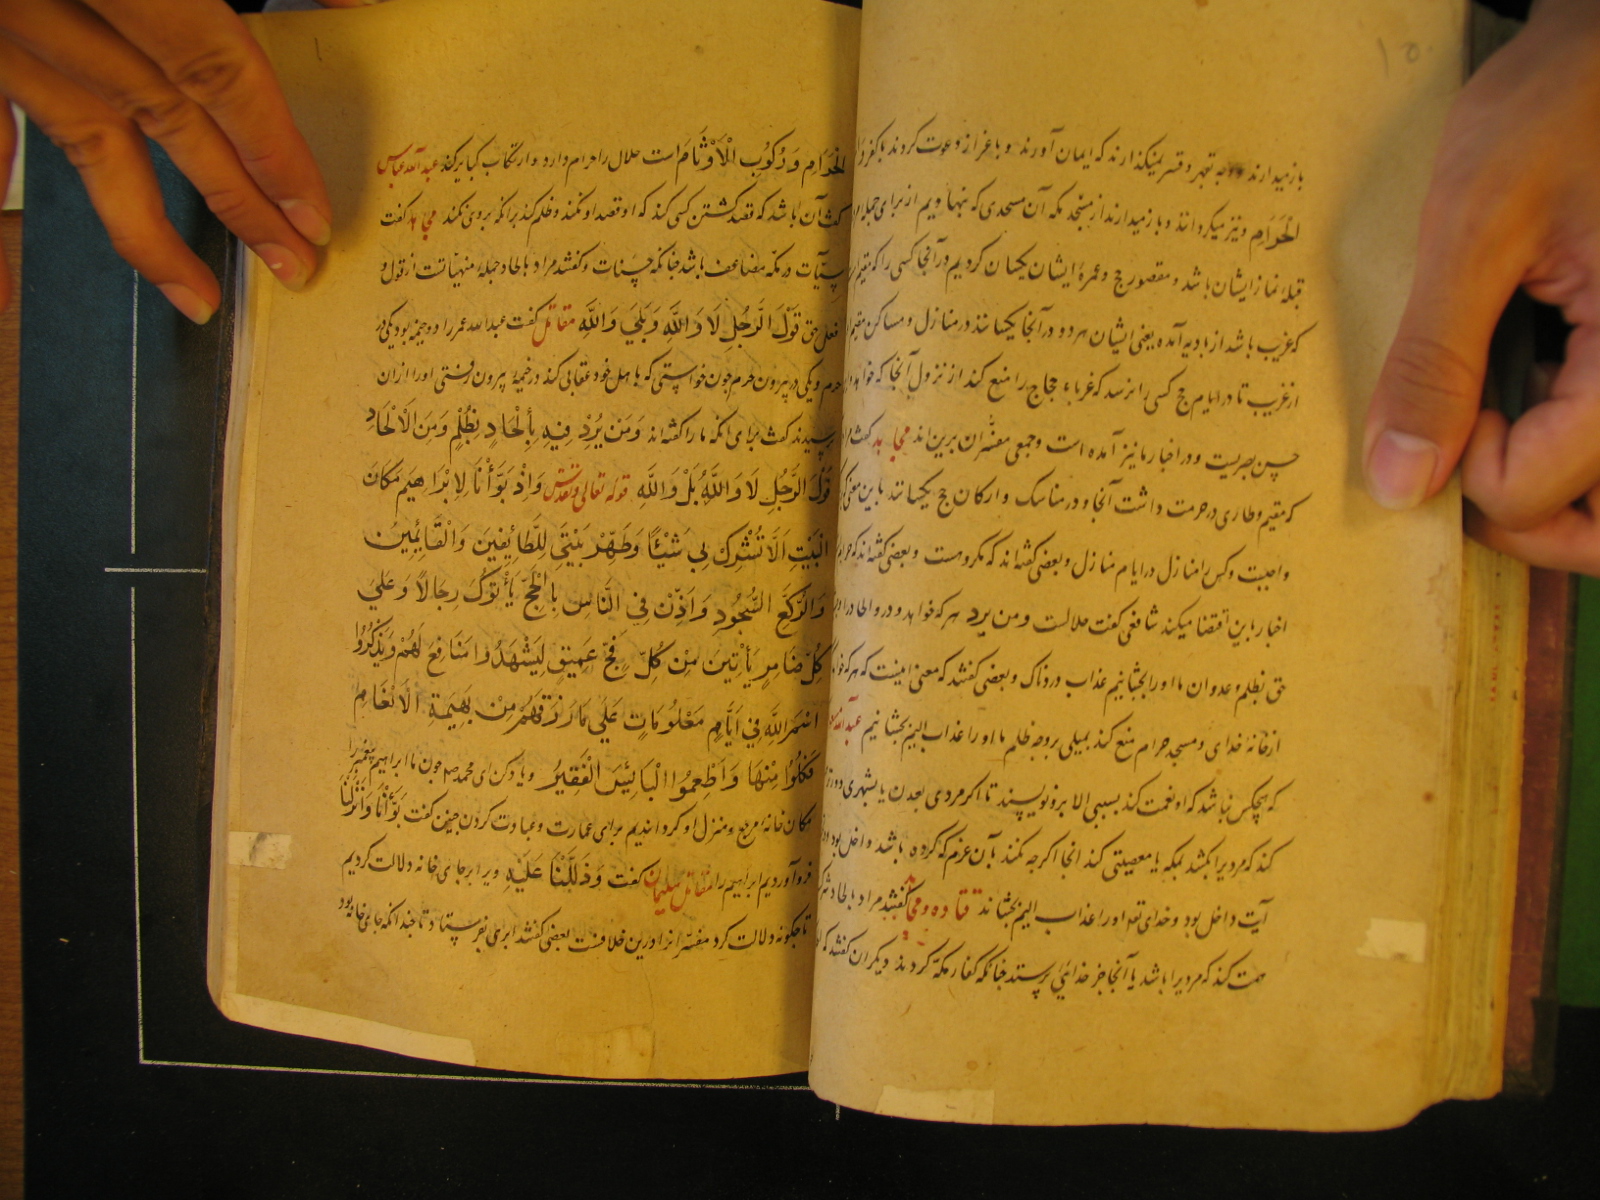 ۱۵۰
بازمیدارند و به تقهر و قسر نمیگذارند که ایمان آورند و باغراز و عوت کردند بکفر و از
الْحَرَامِ و نیز میگردانند و بازمیدارند از مسجد مکه آن مسجدی که بنهادیم از برای جمله مر
قبله نماز ایشان باشد و مقصور حج و عمره ایشان یکسان کردیم در آنجا کسی را که مقیم
که غریب باشد از بادیه آمده یعنی ایشان هر دو در آنجا یکسانند در منازل و مساکن مقیم
از غریب تا در ایام حج کسی را نرسد که غرباء حجاج را منع کند از نزول آنجا که خواهد
حسن بصریست و در اخبار ما نیز آمده است و جمعی مفسّران برین اند مجاهد گفت مراد
که مقیم و طاری در حرمت داشت آنجا و در مناسک و ارکان حج یکسانند باین معنی
واجبست و کس را منازل در ایام منازل و بعضی گفته اند که مکروهست و بعضی گفته اند که حرام
اخبار باین اقتضا میکند شافعی گفت حلالست و من یرد هر که خواهد و در و الحاد
حق بظلم و عدوان ما او را بچشانیم عذاب دردناک و بعضی گفتند که معنی اینست که هر که
از خانه خدای و مسجد حرام منع کند بمیلی بر وجه ظلم ما او را عذاب الیم بچشانیم عبدالله
که هیچکس نباشد که او نعمت کند بسیبی الا برو نویسند تا اگر مردی بعدن یا بشهری دور
کند که مردیرا بکشد بمکه یا معصیتی کند آنجا اگرچه نکند بآن عزم که کرده باشد داخل بود
آیت داخل بود و خدای تعه او را عذاب الیم بچشاند قتاده و مجاهد گفتند مراد بالحاد
همت کند که مردیرا باشد یا آنجا جز خدایی پرستند چنانکه کفار مکه کردند دیگران گفتند که
الْحَرَامِ وَرُكُوبِ الْأَوْثَامِ است حلال را حرام دارد و ارتکاب کبایر کند عبدالله عباس
گفت آن باشد که قصد کشتن کسی کند که او قصد او نکند و ظلم کند بر آنکه بر وی نکند مجاهد گفت
سیّئات در مکه مضاعف باشد چنانکه حسنات و گفتند مراد بالحاد جمله منهیاتست از قول و
فعل حتی قَوْلَ الرَّجُلِ لَا وَاللَّهِ وَبَلَي وَاللَّهِ مقاتل گفت عبدالله عمر را دو خیمه بود یکی در
حرم و یکی در بیرون حرم چون خواستی که با اهل خود عتابی کند در خیمه بیرون رفتی او را از آن
پرسیدند گفت برای آنکه ما را گفته اند وَمَنْ يُرِدْ فِيهِ بِأَلْحَادٍ بِظُلْمٍ وَمِنَ الْاَلْحَادِ
قَوْلَ الرَّجُلِ لَا وَاللَّهِ بَلْ وَاللَّهِ قوله تعالی و تقدّس وَاِذْ بَوَّأْنَا لِاِبْرَاهِيمَ مَكَانَ
الْبَيْتِ اَلَّا تُشْرِكْ بِي شَيْئًا وَطَهِّرْ بَيْتِيَ لِلطَّائِفِينَ وَالْقَائِمِينَ
وَالرُّكَّعِ السُّجُودِ وَاَذِّنْ فِي النَّاسِ بِالْحَجِّ يَأْتُوكَ رِجَالًا وَعَلَي
كُلِّ ضَامِرٍ يَأْتِينَ مِنْ كُلِّ فَجٍّ عَمِيقٍ لِيَشْهَدُوا مَنَافِعَ لَهُمْ وَيَذْكُرُوا
اسْمَ اللَّهِ فِي اَيَّامٍ مَعْلُومَاتٍ عَلَي مَا رَزَقَهُمْ مِنْ بَهِيمَةِ الْاَنْعَامِ
فَكُلُوا مِنْهَا وَاَطْعِمُوا الْبَائِسَ الْفَقِيرَ و یاد کن ای محمد ص چون ما ابراهیم پیغمبر را
مکان خانه مرجع و منزل او گردانیدیم برای عمارت و عبادت کردن حسن گفت بَوَّأْنَا وَانْزَلْنَا
فرو آوردیم ابراهیم را مقاتل سلیمان گفت وَدَلَّلْنَا عَلَيْهِ ویرا بر جای خانه دلالت کردیم
تا چگونه دلالت کرد مفسّرانرا درین خلافست بعضی گفتند ابری بفرستاد تا چندانکه جای خانه بود